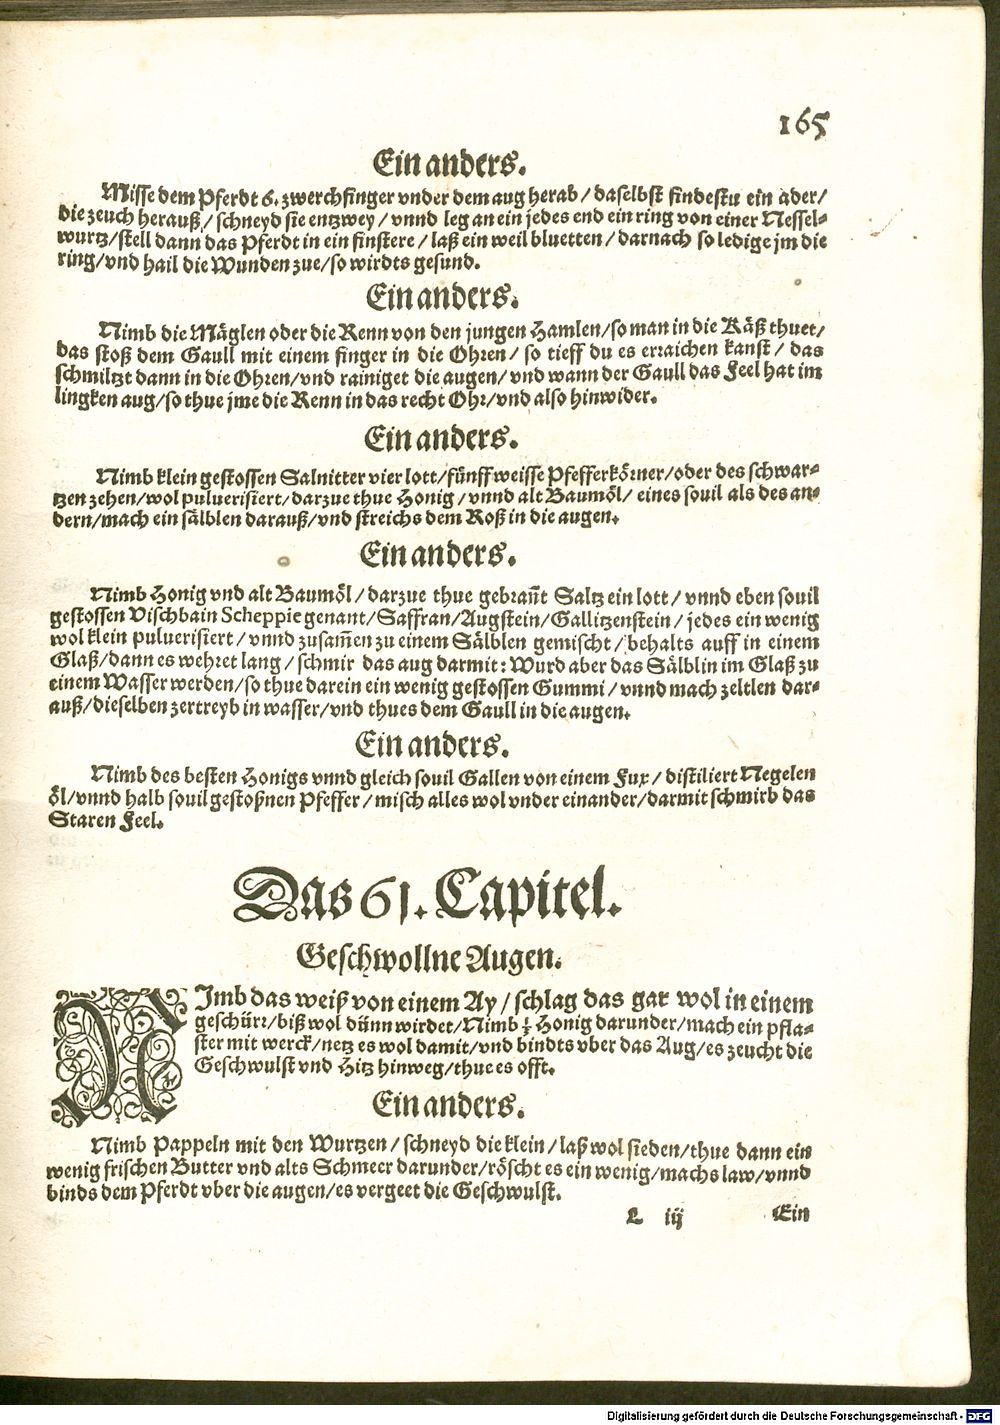 165
Ein anders.
Misse dem Pferdt 6. zwerchfinger vnder dem aug herab / daselbst findestu ein ader /
die zeuch herauß / schneyd sie entzwey / vnnd leg an ein jedes end ein ring von einer Nessel-
wurtz / stell dann das Pferdt in ein finstere / laß ein weil bluetten / darnach so ledige jm die
ring / vnd hail die Wunden zue / so wirdts gesund.
Ein anders.
Nimb die Mäglen oder die Renn von den jungen Hamlen / so man in die Käß thuet /
das stoß dem Gaull mit einem finger in die Ohren / so tieff du es erraichen kanst / das
schmiltzt dann in die Ohren / vnd rainiget die augen / vnd wann der Gaull das Feel hat im
lingken aug / so thue jme die Renn in das recht Ohr / vnd also hinwider.
Ein anders.
Nimb klein gestossen Salnitter vier lott / fünff weisse Pfefferkörner / oder des schwar-
tzen zehen / wol puluerisiert / darzue thue Honig / vnnd alt Baumöl / eines souil als des an-
dern / mach ein sälblen darauß / vnd streichs dem Roß in die augen.
Ein anders.
Nimb Honig vnd alt Baumöl / darzue thue gebrañt Saltz ein lott / vnnd eben souil
gestossen Vischbain Scheppie genant / Saffran / Augstein / Gallitzenstein / jedes ein wenig
wol klein puluerisiert / vnnd zusam̃en zu einem Sälblen gemischt / behalts auff in einem
Glaß / dann es wehret lang / schmir das aug darmit: Wurd aber das Sälblin im Glaß zu
einem Wasser werden / so thue darein ein wenig gestossen Gummi / vnnd mach zeltlen dar-
auß / dieselben zertreyb in wasser / vnd thues dem Gaull in die augen.
Ein anders.
Nimb des besten Honigs vnnd gleich souil Gallen von einem Fux / distiliert Negelen
öl / vnnd halb souil gestoßnen Pfeffer / misch alles wol vnder einander / darmit schmirb das
Staren Feel.
Das 61. Capitel.
Geschwollne Augen.
NJmb das weiß von einem Ay / schlag das gar wol in einem
geschürr / biß wol dünn wirdet / Nimb ½ Honig darunder / mach ein pfla-
ster mit werck / netz es wol damit / vnd bindts vber das Aug / es zeucht die
Geschwulst vnd Hitz hinweg / thue es offt.
Ein anders.
Nimb Pappeln mit den Wurtzen / schneyd die klein / laß wol sieden / thue dann ein
wenig frischen Butter vnd alts Schmeer darunder / röscht es ein wenig / machs law / vnnd
binds dem Pferdt vber die augen / es vergeet die Geschwulst.
L iij Ein
Digitalisierung gefördert durch die Deutsche Forschungsgemeinschaft - DFG